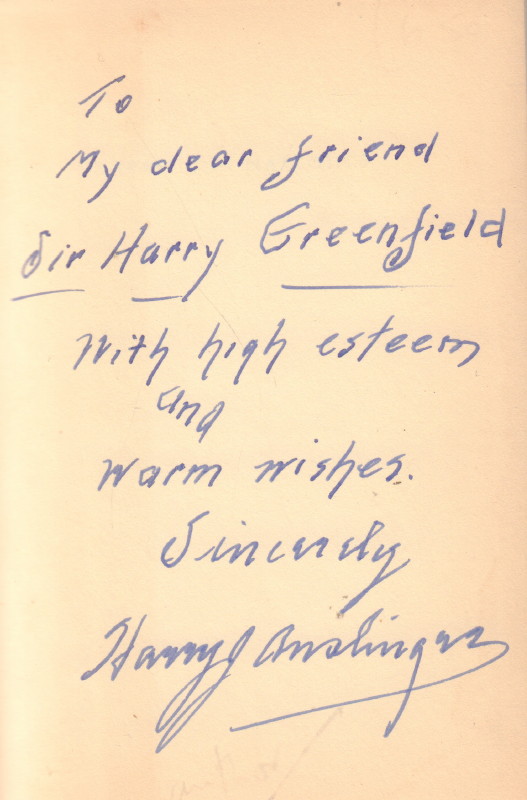 To
My dear friend
Sir Harry Greenfield
With high esteem
and
Warm wishes.
Sincerely
Harry J Anslinger
author